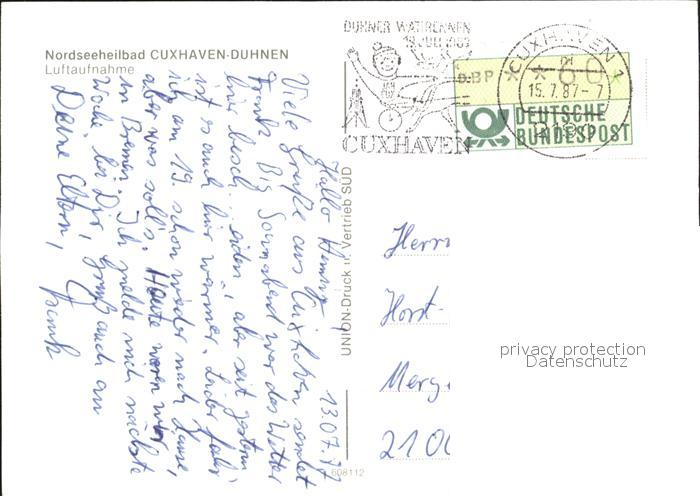 Nordseeheilbad CUXHAVEN-DUHNEN
Luftaufnahme
DUHNER WATTRENNEN
19. JULI 1987
CUXHAVEN
CUXHAVEN 1
15.7.87-7
DBP
**60
DEUTSCHE
BUNDESPOST
13.07.87
Hallo
Viele Grüße aus Cuxhaven sendet
Frank. Bis Sonnabend war das Wetter
hier besch...eiden, aber seit gestern
ist es auch hier wärmer. Leider fahr
ich am 19. schon wieder nach Hause,
aber was soll's. Heute waren wir
in Bremen. Ich melde mich nächste
Woche bei Dir, Gruß auch an
Deine Eltern,
Frank
UNION-Druck u. Vertrieb SÜD
608112
Herrn
Horst-
Merg
2100
privacy protection
Datenschutz